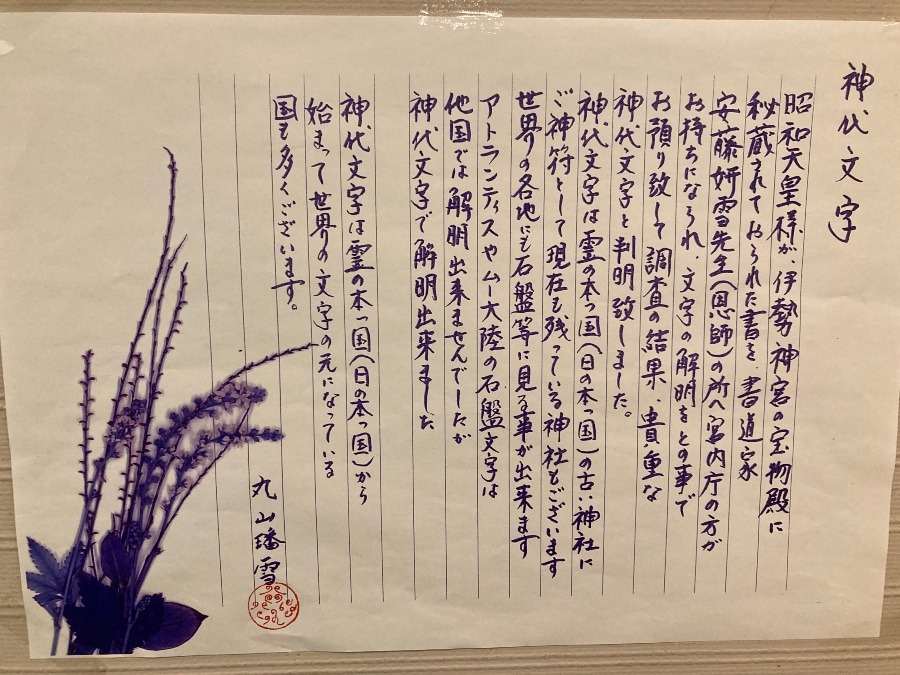 神代文字
昭和天皇様が、伊勢神宮の宝物殿に
秘蔵されておられた書を、書道家
安藤妍雪先生(恩師)の所へ宮内庁の方が
お持ちになられ、文字の解明をとの事で
お預り致して調査の結果、貴重な
神代文字と判明致しました。
神代文字は霊の本っ国(日の本っ国)の古い神社に
ご神符として現在も残っている神社もございます
世界の各地にも石盤等に見る事が出来ます
アトランティスやムー大陸の石盤文字は
他国では解明出来ませんでしたが
神代文字で解明出来ました
神代文字は霊の本っ国(日の本っ国)から
始まって世界の文字の元になっている
国も多くございます。
丸山璠雪